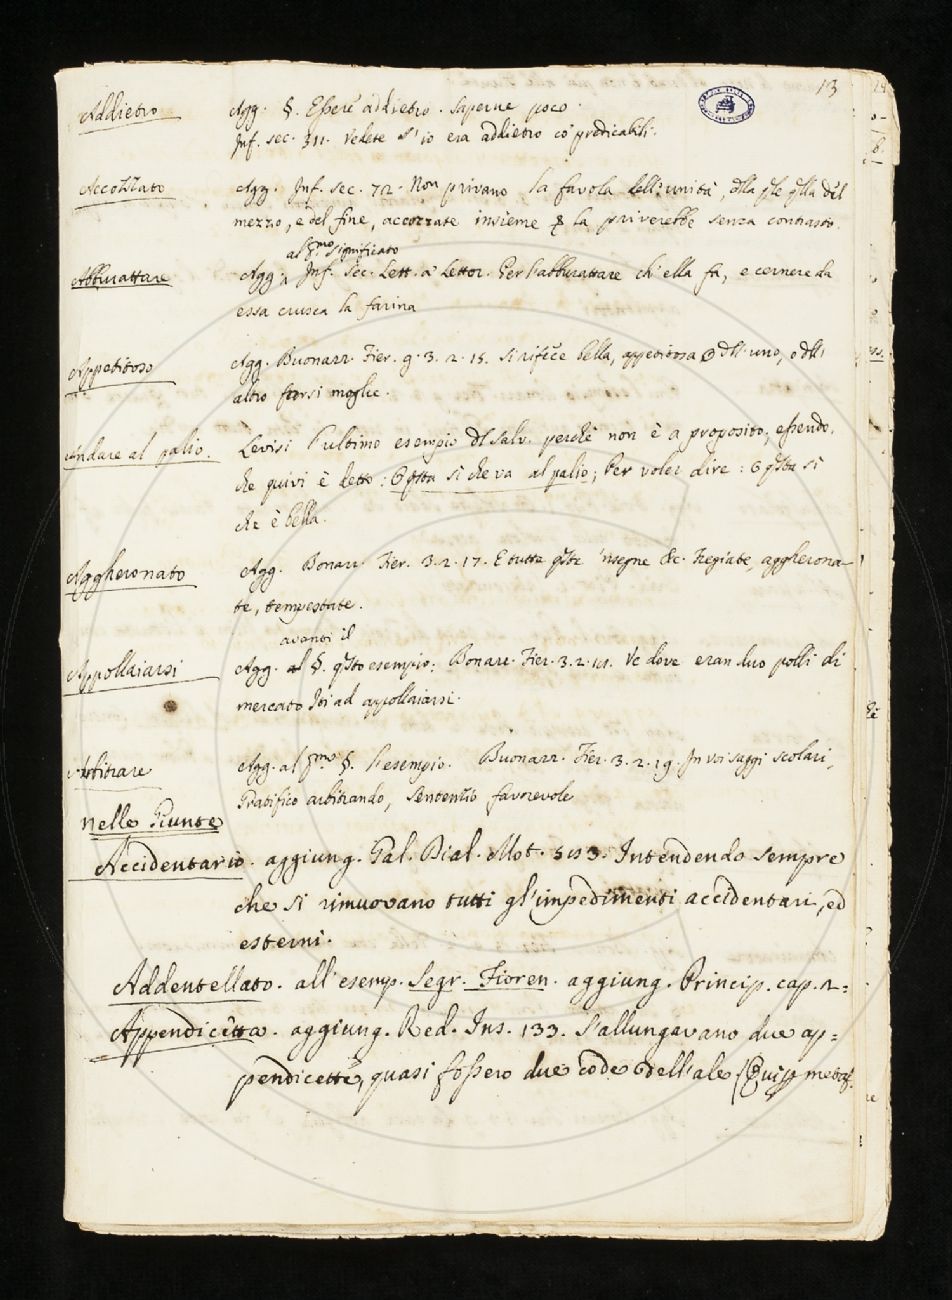 13
Addietro Agg. §. Essere addietro. Saperne poco.
Inf. sec. 311. Vedete s'io era addietro cō predicabili.
Accozzato Agg. Inf. sec. 72. Non privano la favola dell'unità, dlla qle qlla del
mezzo, e del fine, accozzate insieme la priverebbe senza contrasto
al pmo significato
Abburattare Agg. Inf. Sec. Lett. a' Lettor. Per l'abburattare ch'ella fa, e cernere da
essa crusca la farina
Appetitoso Agg. Buonarr. Fier. g. 3. 2. 15. si rifece bella, appetitosa O dll'uno, o dll'
altro forsi moglie.
Andare al palio. Levisi l'ultimo esempio dl Salv. perchè non è a proposito, essendo.
che quivi è detto: O qsta sì che va al palio; per voler dire: O qsta sì
che è bella.
Aggheronato Agg. Bonarr. Fier. 3. 2. 17. E tutte qste 'nsegne &c. Fregiate, aggherona-
te, tempestate.
avanti il
Appollaiarsi Agg. al §. qsto esempio: Bonarr. Fier. 3. 2. Ve dove eran duo polli di
mercato Iti ad appollaiarsi.
Arbitrare Agg. al pmo §. l'esempio. Buonarr. Fier. 3. 2. 19. In voi suggi scolari,
Gratifico arbitrando, sentenzio favorevole
nelle Giunte
Accidentario. aggiung. Gal. Dial. Mot. 503. Intendendo sempre
che si rimuovano tutti gl'impedimenti accidentari, ed
esterni.
Addentellato. all'esemp. Segr. Fioren. aggiung. Princip. cap. 2.
Appendicetta. aggiung. Red. Ins. 133. S'allungavano due ap=
pendicette, quasi fossero due code dell'ale (Qui p metaf.